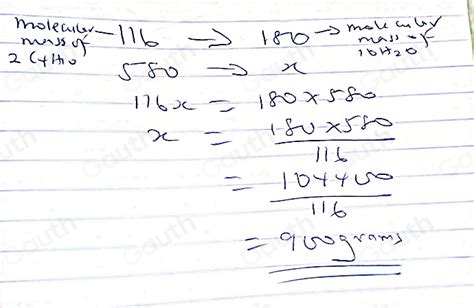 molecular mass of 2 C4H10 — 116 → 180 → molecular mass of 10H2O
580 → x
116x = 180 x 580
x = 180 x 580
116
= 104400
116
= 900grams